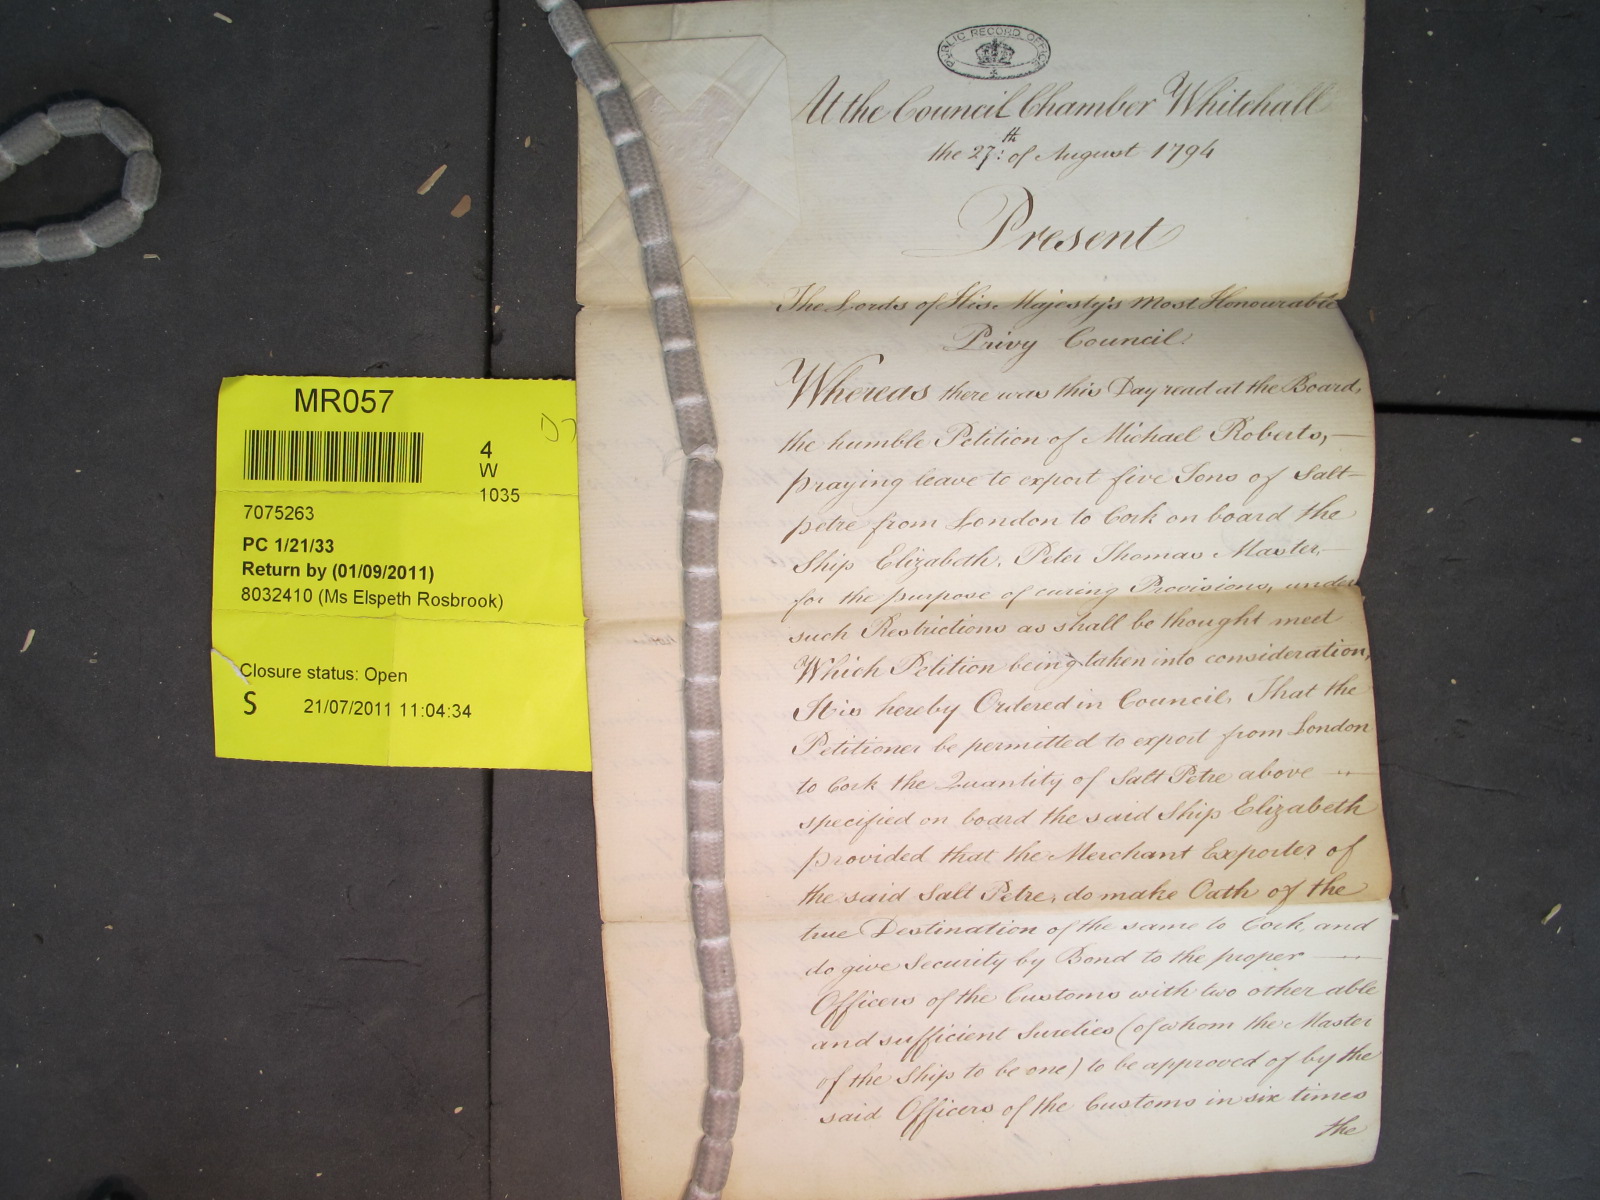 MR057
4
W
1035
7075263
PC 1/21/33
Return by (01/09/2011)
8032410 (Ms Elspeth Rosbrook)
Closure status: Open
S 21/07/2011 11:04:34
PUBLIC RECORD OFFICE
At the Council Chamber Whitehall
the 27:th of August 1794
Present
The Lords of His Majesty's most Honourable
Privy Council.
Whereas there was this Day read at the Board,
the humble Petition of Michael Roberts,—
praying leave to export five Tons of Salt-
petre from London to Cork on board the
Ship Elizabeth, Peter Thomas Master,—
for the purpose of curing Provisions, under
such Restrictions as shall be thought meet
Which Petition being taken into consideration,
It is hereby Ordered in Council, That the
Petitioner be permitted to export from London
to Cork the Quantity of Salt Petre above
specified on board the said Ship Elizabeth
provided that the Merchant Exporter of
the said Salt Petre, do make Oath of the
true Destination of the same to Cork, and
do give Security by Bond to the proper —
Officers of the Customs with two other able
and sufficient Sureties (of whom the Master
of the Ship to be one) to be approved of by the
said Officers of the Customs in six times
the